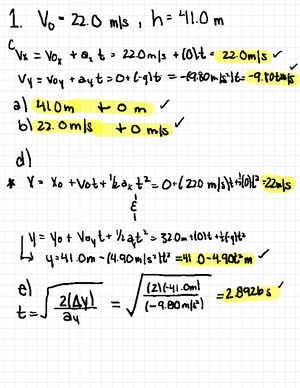 1. V₀ = 22.0 m/s , h = 41.0 m
c Vx = V₀x + axt = 22.0m/s + (0)t = 22.0m/s ✓
Vy = V₀y + ayt = 0 + (-g)t = -(9.80 m/s²)t = -9.80tm/s
a) 41.0m + 0 m ✓
b) 22.0m/s + 0 m/s ✓
d)
* X = X₀ + V₀t + ½axt² = 0 + (22.0 m/s)t + ½(0)t² = 22m/s
&
y = y₀ + V₀yt + ½at² = 32.0m + (0)t + ½(-g)t²
↳ y = 41.0m - (4.90m/s²)t² = 41.0 - 4.90t²m ✓
e)
t = √(2(Δy)/ay) = √((2)(-41.0m)/(-9.80m/s²)) = 2.8926s ✓